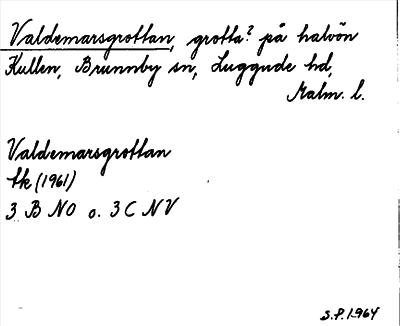 Valdemarsgrottan, grotta? på halvön
Kullen, Brunnby sn, Luggude hd,
Malm. l.
Valdemarsgrottan
tk (1961)
3 B NO o. 3 C NV
S.P. 1964